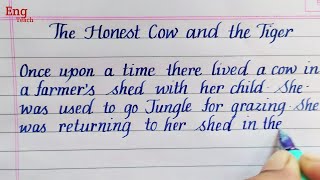 Eng
Teach
The Honest Cow and the Tiger
Once upon a time there lived a cow in
a farmer's shed with her child. She
was used to go Jungle for grazing. She
was returning to her shed in the